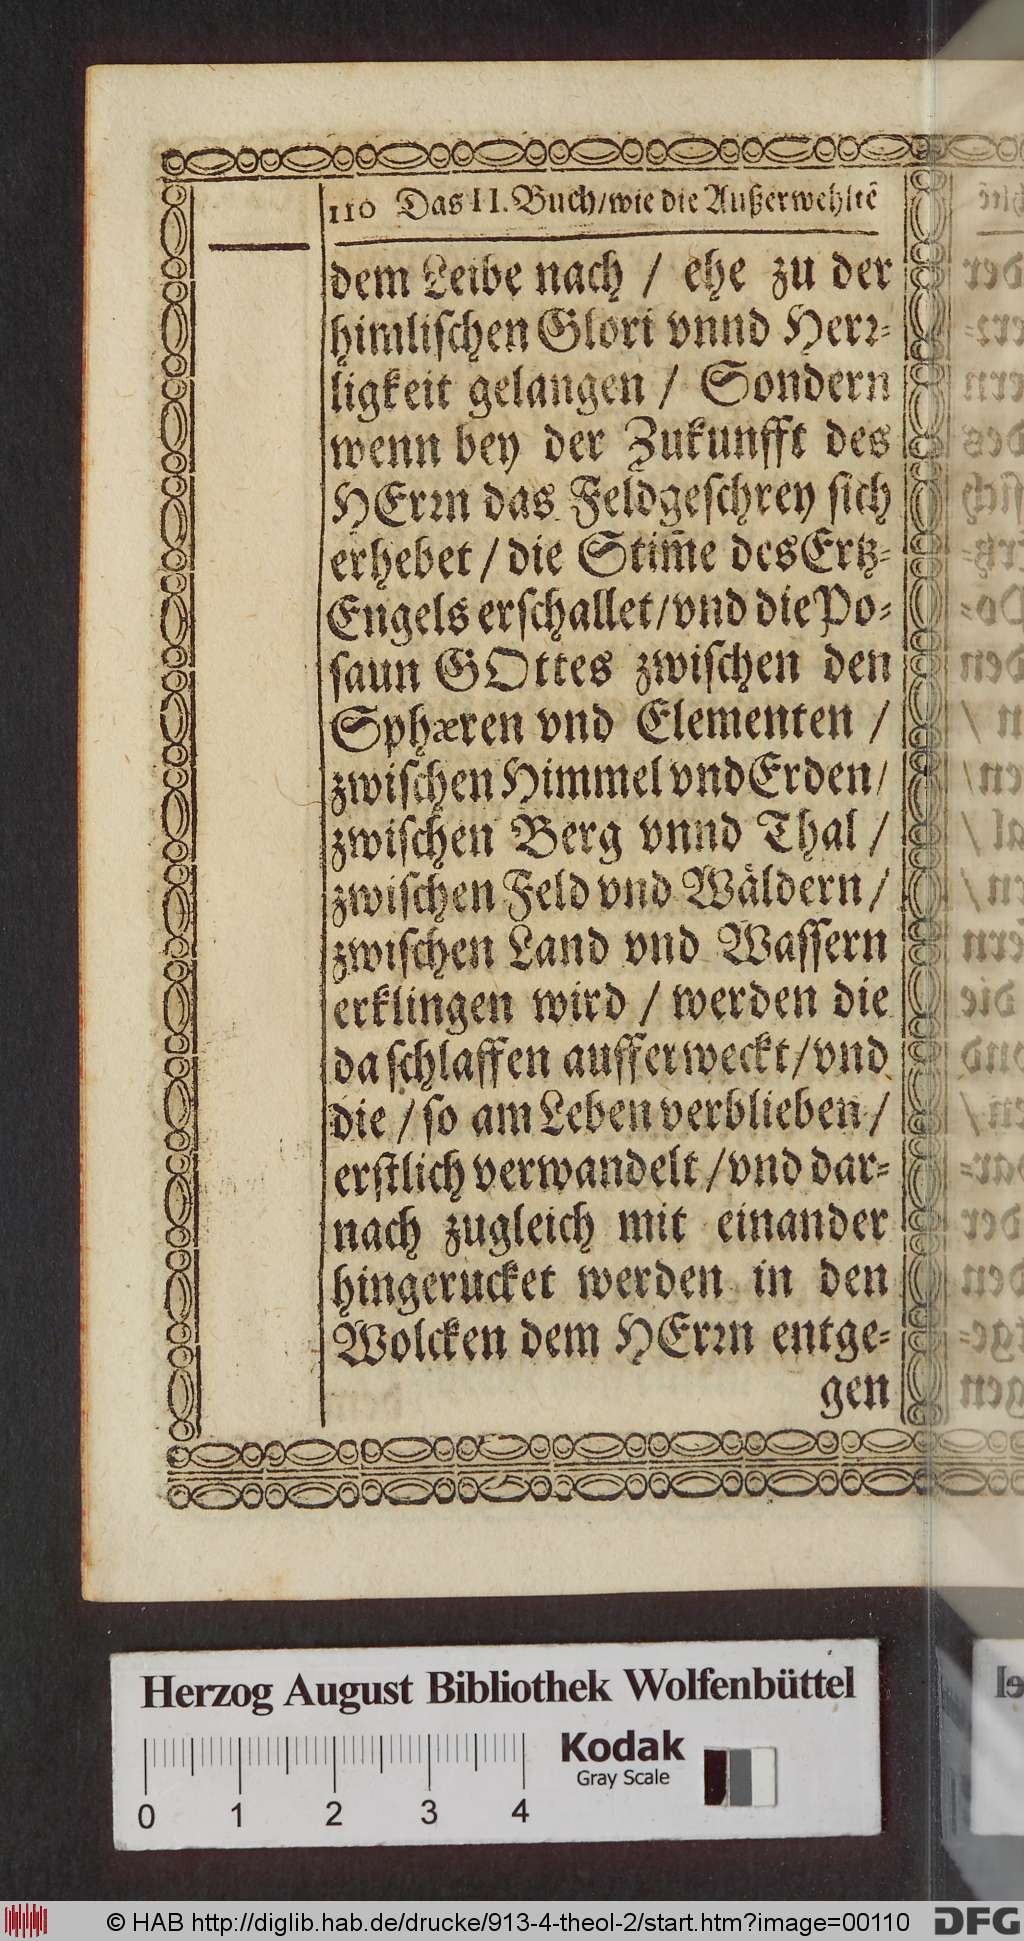 110 Das II. Buch/wie die Außerwehltẽ
dem Leibe nach / ehe zu der
himlischen Glori vnnd Herꝛ-
ligkeit gelangen / Sondern
wenn bey der Zukunfft des
HErꝛn das Feldgeschrey sich
erhebet / die Stim̃e des Ertz-
Engels erschallet/vnd die Po-
saun GOttes zwischen den
Sphæren vnd Elementen /
zwischen Himmel vnd Erden/
zwischen Berg vnnd Thal /
zwischen Feld vnd Wäldern /
zwischen Land vnd Wassern
erklingen wird / werden die
da schlaffen aufferweckt/vnd
die / so am Leben verblieben /
erstlich verwandelt /vnd dar-
nach zugleich mit einander
hingerucket werden in den
Wolcken dem HErꝛn entge-
gen
Herzog August Bibliothek Wolfenbüttel
Kodak
Gray Scale
0 1 2 3 4
© HAB http://diglib.hab.de/drucke/913-4-theol-2/start.htm?image=00110
DFG